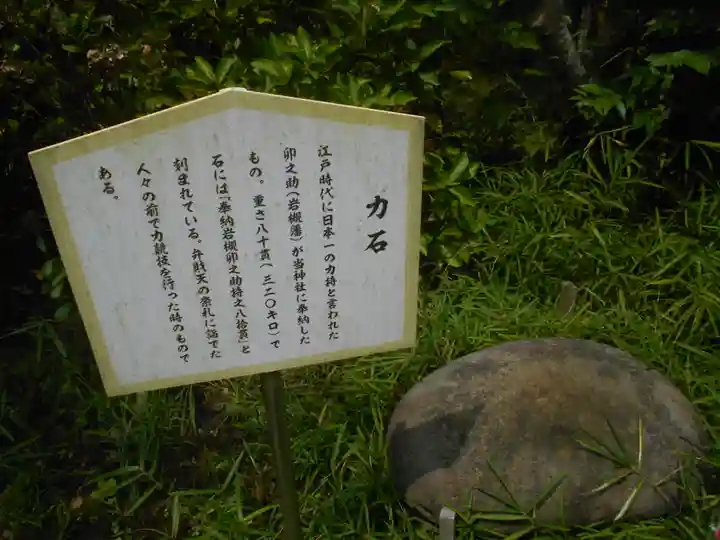 力石
江戸時代に日本一の力持と言われた
卯之助(岩槻藩)が当神社に奉納した
もの。重さ八十貫(三二〇キロ)で
石には「奉納岩槻卯之助持之八拾貫」と
刻まれている。弁財天の祭礼に詣でた
人々の前で力競技を行った時のもので
ある。